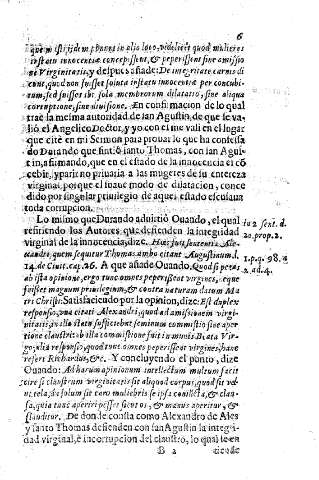 6
stato innocentiæ concepissent, & peperissent sine omissio
ne Virginitatis, y despues añade: De integritate carnis di
cunt, quæ non fuisset soluta in statu innocentiæ per concubi-
tum, sed fuisset ibi sola membrorum dilatatio, sine aliqua
corruptione, sine diuisione. En confirmacion de lo qual
trae la mesma autoridad de san Agustin, de que se va-
lió el Angelico Doctor, y yo con el me vali en el lugar
que cité en mi Sermon para prouar lo que ha confessa
do Durando que sintió santo Thomas, con san Agus
tin, afirmando, que en el estado de la innocencia el cō
cebir, y parir no priuaria a las mugeres de su entereza
virginal, porque el suaue modo de dilatacion, conce
dido por singular priuilegio de aquel estado escusaua
toda corrupcion.
Lo mismo que Durando aduirtió Ouando, el qual
refiriendo los Autores que defienden la integridad
virginal de la innocencia, dize. Hæc fuit sententia Ale-
xandri, quem sequitur Thomas ambo citant Augustinum l.
14. de Ciuit. cap. 26. A que añade Ouando. Quod si peta
ab ista opinione, ergo tunc omnes peperissent virgines, neque
fuisset magnum priuilegium, & contra naturam datum Ma
tri Christi. Satisfaciendo por la opinion, dize: Est duplex
responsio, vna citati Alexandri, quod ad amissionem virgi-
nitatis, in illo statu sufficiebat seminum commistio sine aper
tione claustri: ab illa commistione fuit immunis Beata Vir-
go; alia responsio, quod tunc omnes peperissent virgines, hanc
refert Richardus, &c. Y concluyendo el punto, dize
Ouando: Ad harum opinionum intellectum multum facit
scire si claustrum virginitatis sit aliquod corpus, quod sit ve-
lut tela, de solum sit cero muliebris se ipsa conficta, & clau-
sa, quia tunc aperiri posset sicut os, & manus aperitur, &
clauditur. De donde consta como Alexandro de Ales
y santo Thomas defienden con san Agustin la integri-
dad virginal, è incorrupcion del claustro, lo qual te en
B 2
in 2 sent. d.
20. prop. 2.
1. p. q. 98. a
2. ad. 4.